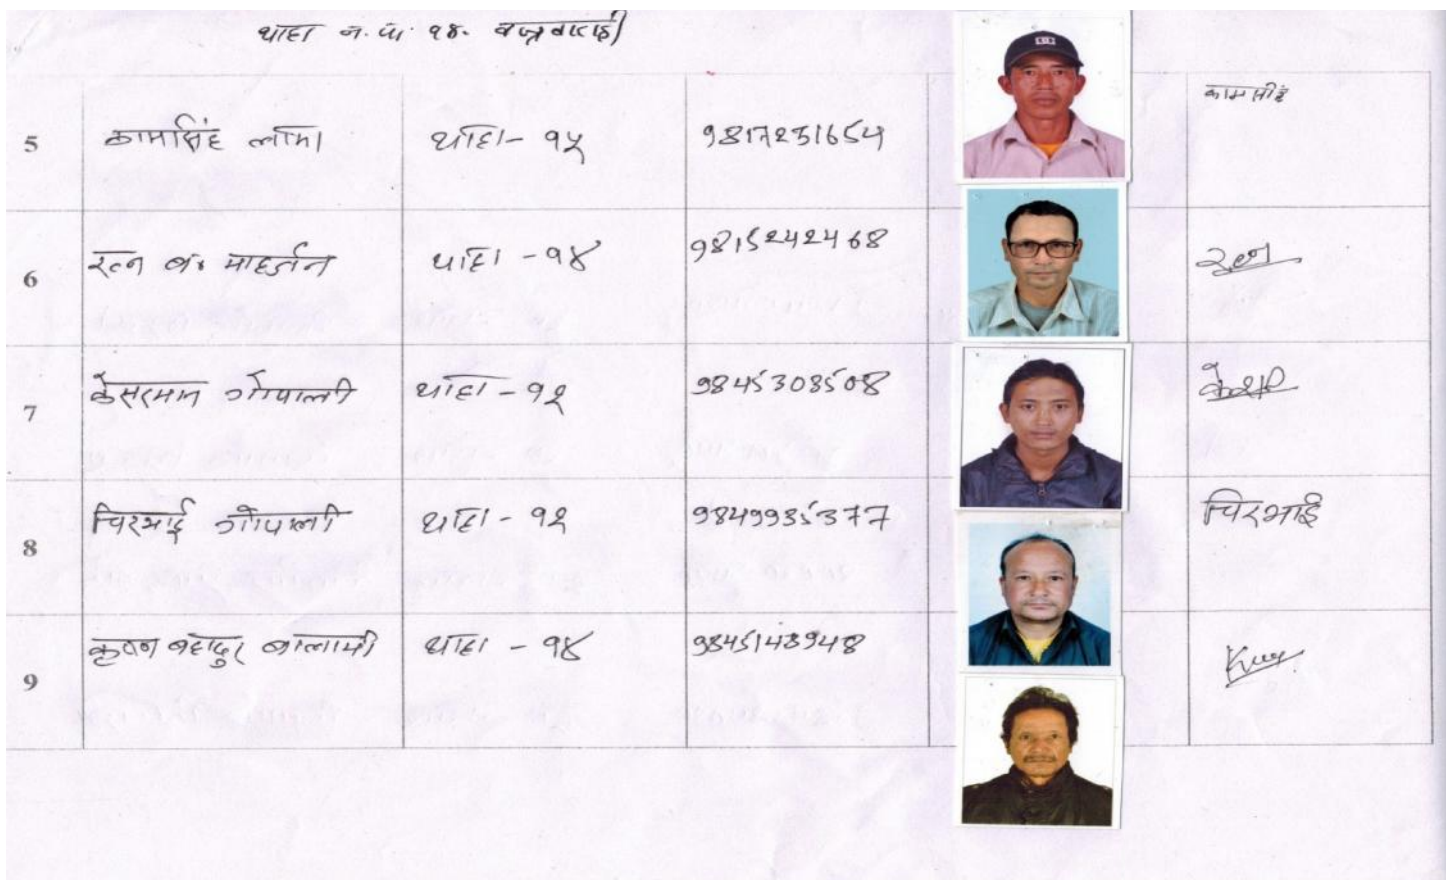 थाहा न.पा. १४. बज्रबाराही
5 कामसिंह लामा थाहा- १५ 9817251654 कामसिंह
6 रत्न ब. माहर्जन थाहा - १४ 9815242468 रत्न
7 केसरमान गोपाली थाहा - १२ 9845303508
8 चिरभाई गोपाली थाहा - १२ 9849935377 चिरभाई
9 कृष्ण बहादुर बलामी थाहा - १४